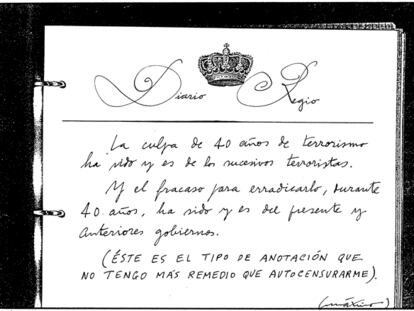 Diario Regio
La culpa de 40 años de terrorismo
ha sido y es de los sucesivos terroristas.
Y el fracaso para erradicarlo, durante
40 años, ha sido y es del presente y
anteriores gobiernos.
(ÉSTE ES EL TIPO DE ANOTACIÓN QUE
NO TENGO MÁS REMEDIO QUE AUTOCENSURARME).
(máximo)